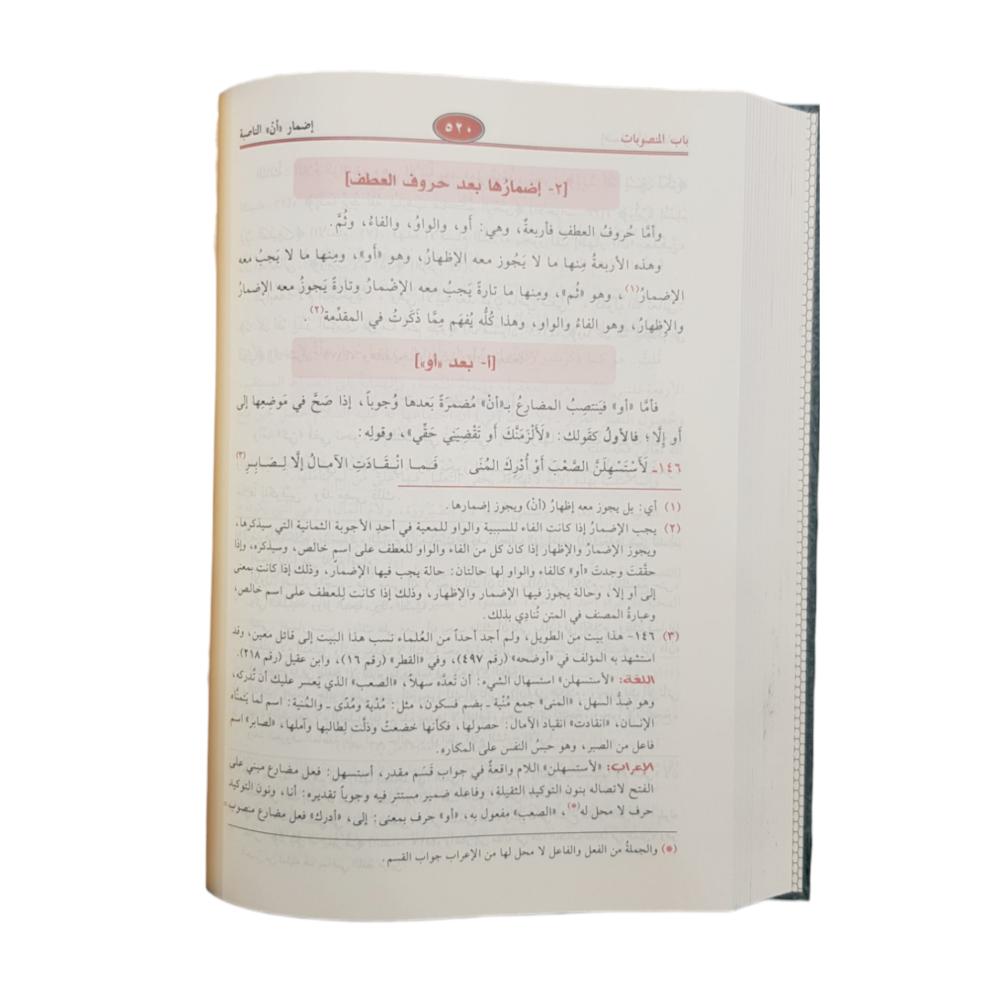 باب المنصوبات ٥٢٠ إضمار «أنْ» الناصبة
[٢- إضمارُها بعد حروف العطف]
وأمَّا حُروفُ العطفِ فأربعةٌ، وهي: أَو، والواوُ، والفاءُ، وثُمَّ.
وهذه الأربعةُ مِنها ما لا يَجُوز معه الإظهارُ، وهو «أَو»، ومِنها ما لا يَجِبُ معه
الإضمارُ(١)، وهو «ثُم»، ومِنها ما تارةً يَجبُ معه الإضْمارُ وتارةً يَجوزُ معه الإضمارُ
والإظهارُ، وهو الفاءُ والواو، وهذا كُلُّه يُفهَم مِمَّا ذَكَرتُ في المقدِّمة(٢).
[أ- بعد «أو»]
فأمَّا «أو» فيَنتصِبُ المضارعُ بـ«أنْ» مُضمرَةً بَعدها وُجوباً، إذا صَحَّ في مَوضِعِها إلى
أَو إِلَّا؛ فالأولُ كقَولك: «لَأَلْزَمَنَّكَ أَو تَقْضِيَني حَقِّي»، وقولِه:
١٤٦- لَأَسْتَسْهِلَنَّ الصَّعْبَ أَوْ أُدْرِكَ المُنَى فَـمـا انْـقَـادَتِ الآمـالُ إلَّا لِـصَـابِـرِ(٣)
(١) أي: بل يجوز معه إظهارُ (أنْ) ويجوز إضمارها.
(٢) يجب الإضمارُ إذا كانت الفاء للسببية والواو للمعية في أحدِ الأجوبة الثمانية التي سيذكرها،
ويجوز الإضمارُ والإظهار إذا كان كل من الفاء والواو للعطف على اسم خالص، وسيذكره، وإذا
حقَّقتَ وجدتَ «أو» كالفاء والواو لها حالتان: حالة يجب فيها الإضمار، وذلك إذا كانت بمعنى
إلى أو إلا، وحالة يجوز فيها الإضمار والإظهار، وذلك إذا كانت للعطف على اسم خالص،
وعبارةُ المصنف في المتن تُنادِي بذلك.
(٣) ١٤٦- هذا بيت من الطويل، ولم أجد أحداً من العُلماء نسب هذا البيت إلى قائل مُعين، وقد
استشهد به المؤلف في «أوضحه» (رقم ٤٩٧)، وفي «القطر» (رقم ١٦)، وابن عقيل (رقم ٢١٨).
اللغة: «لأستسهلن» استسهال الشيء: أن تَعدَّه سهلاً، «الصَعب» الذي يَعسر عليك أن تُدركه،
وهو ضِدُّ السهل، «المنى» جمع مُنْية ـ بضم فسكون، مثل: مُدْية ومُدًى ـ والمُنية: اسم لما يَتمنَّاه
الإنسان، «انقادت» انقياد الآمال: حصولها، فكأنها خضعتْ وذلَّت لِطالبها وآملها، «لصابر» اسم
فاعل من الصبر، وهو حبسُ النفس على المكاره.
الإعراب: «لأستسهلن» اللام واقعةٌ في جواب قَسَم مقدر، أستسهل: فعل مضارع مبني على
الفتح لاتصاله بنون التوكيد الثقيلة، وفاعله ضمير مستتر فيه وجوباً تقديره: أنا، ونون التوكيد
حرف لا محل له(*)، «الصعب» مفعول به، «أو» حرف بمعنى: إلى، «أدرك» فعل مضارع منصوب=
(*) والجملةُ من الفعل والفاعل لا محل لها من الإعراب جواب القسم.